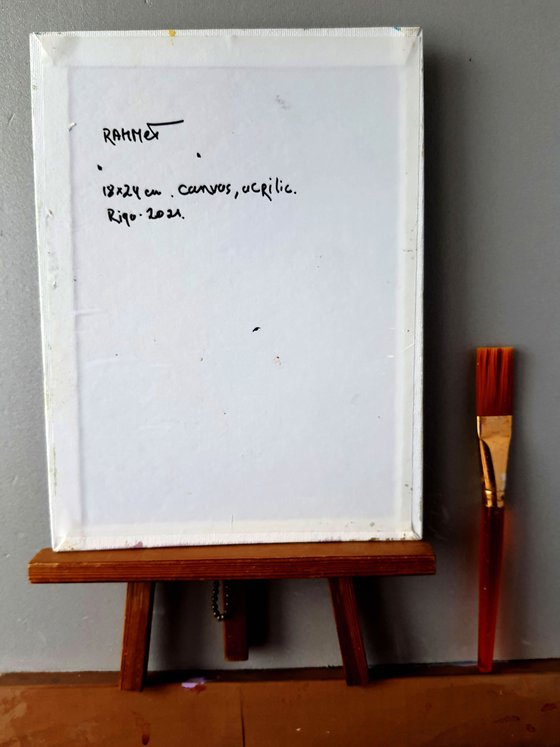 RAHMET
18x24 cm. canvas, acrilic.
Riga. 2021.